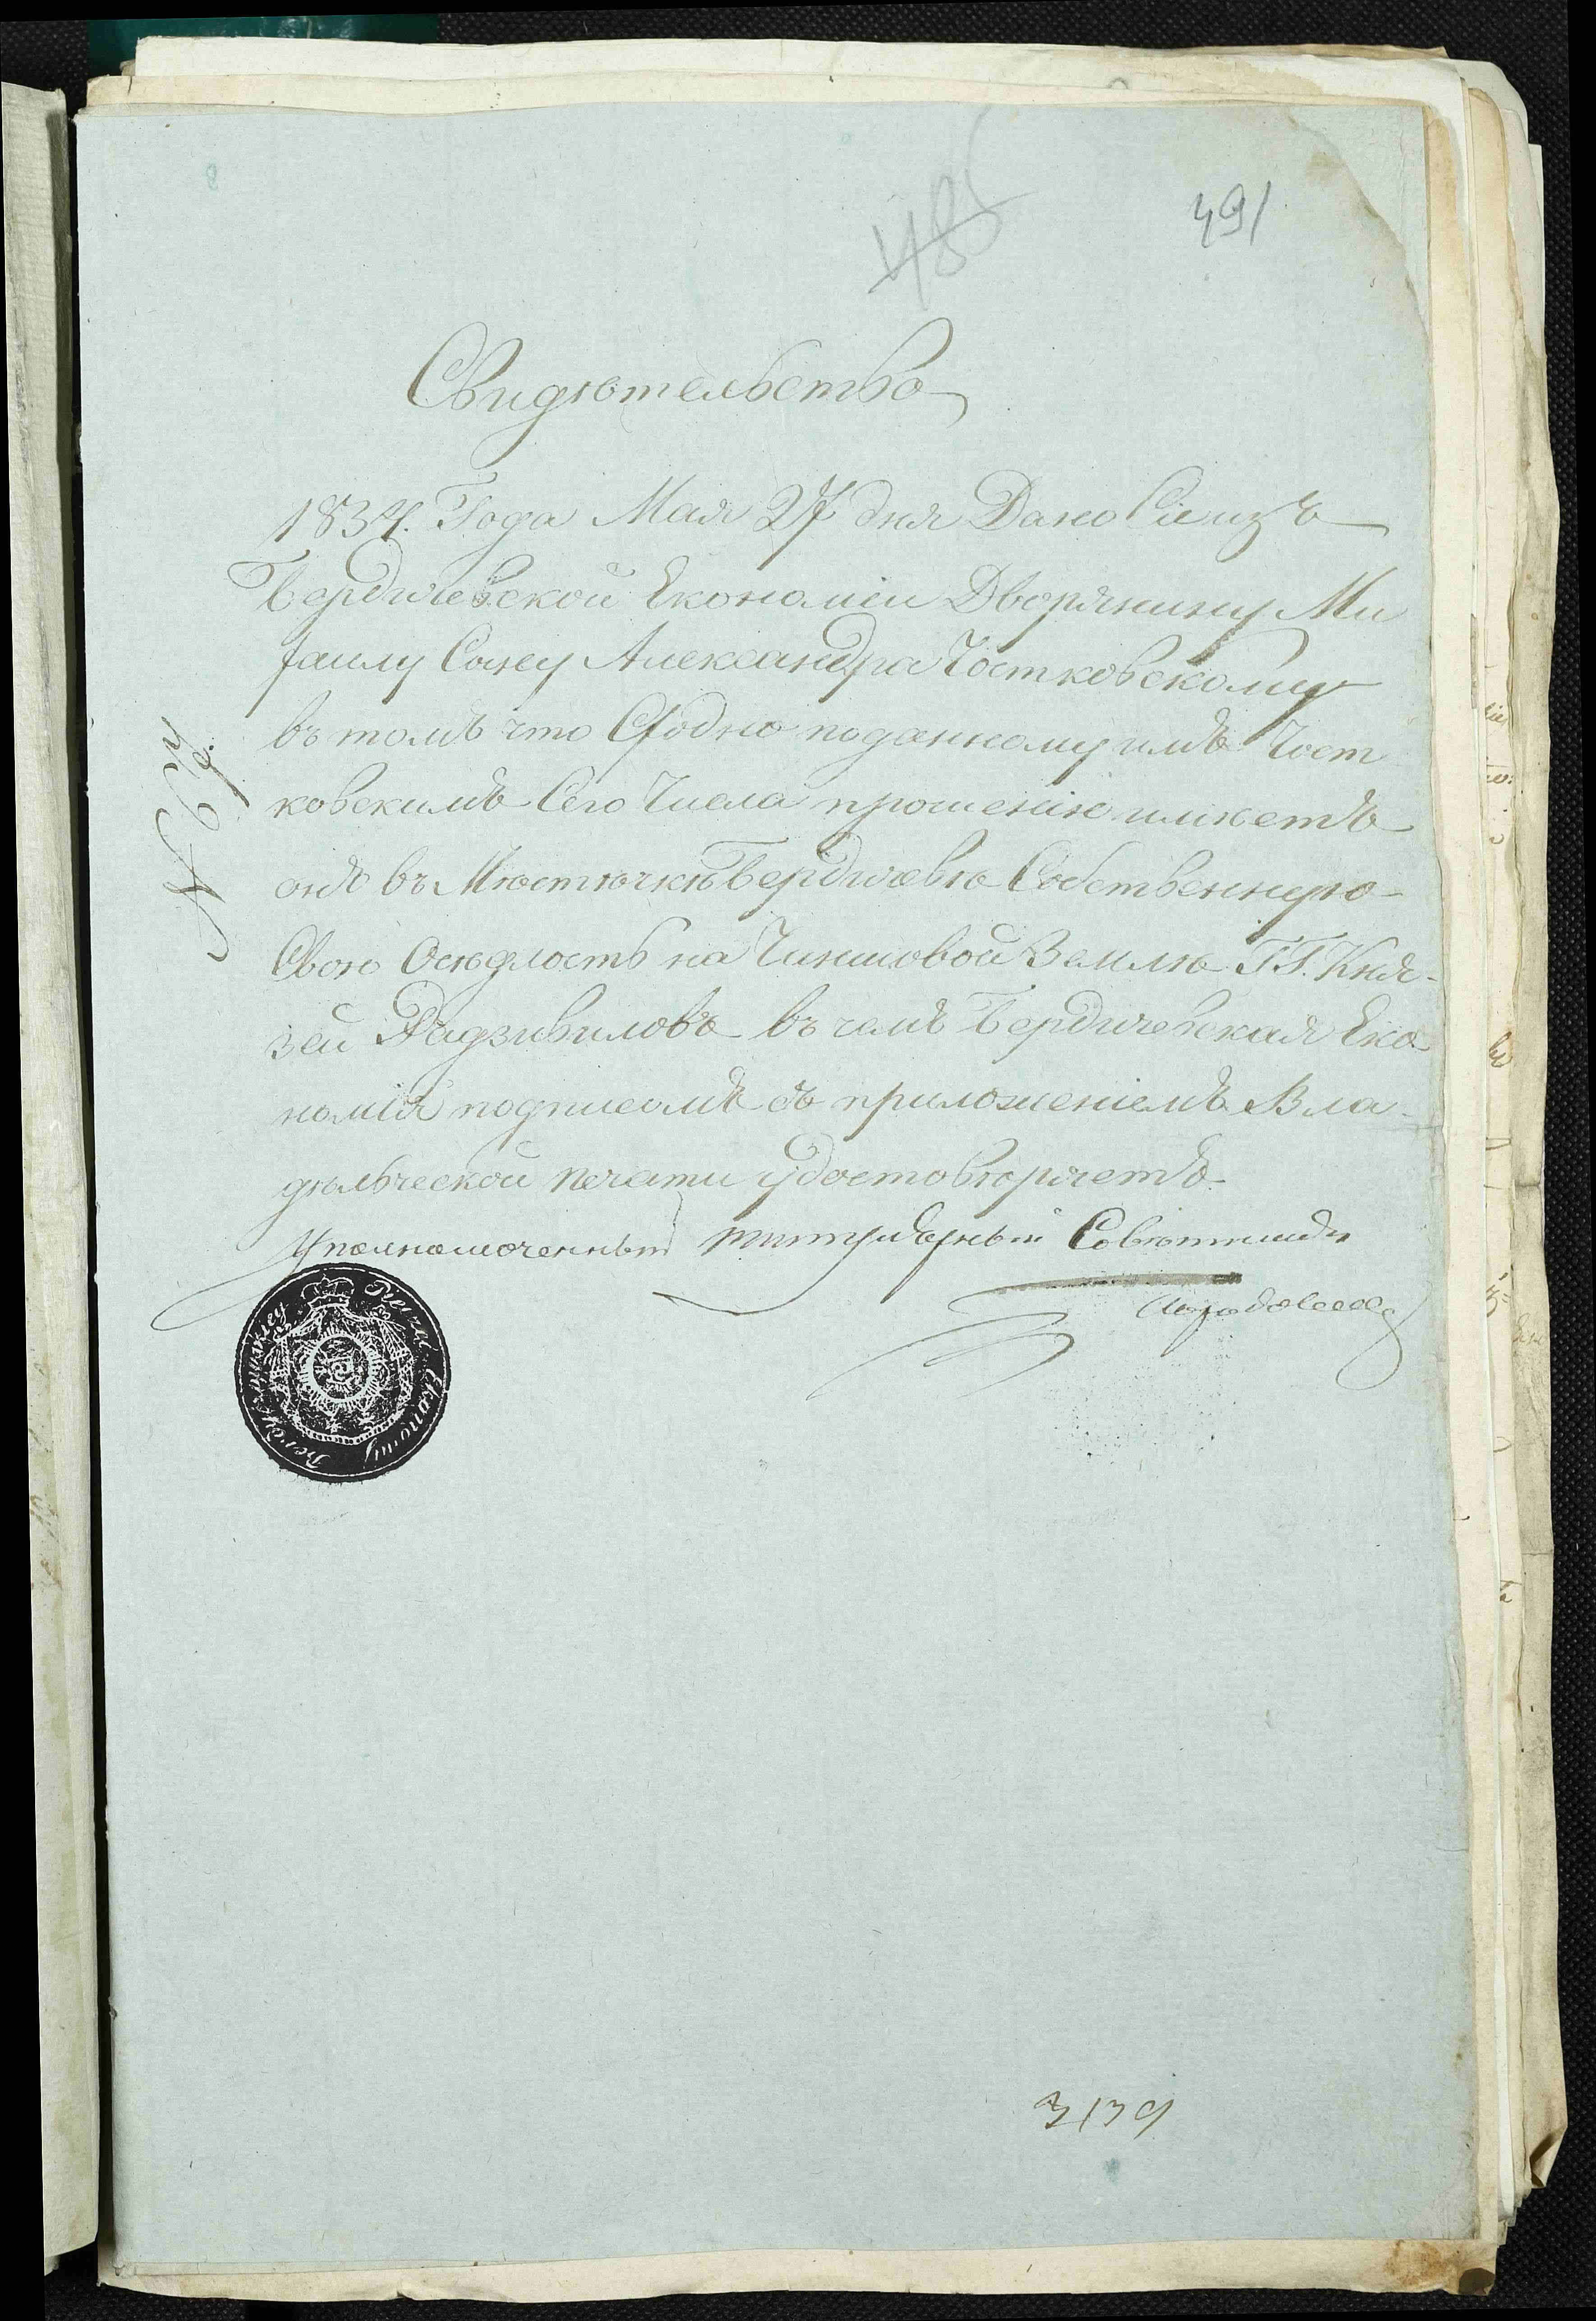 485
491
Свидѣтельство
1834. Года Маія 27 дня Дано Сіе изъ
Бердичевской Економіи Дворянину Ми
хаилу Сыну Александра Чостковскому
въ томъ что Сходно поданному имъ Чост
ковскимъ Сего Числа прошенію имѣетъ
онъ въ Мѣстѣчкѣ Бердичевѣ Собственную
Свою Осѣдлость на Чиншовой Землѣ Г.Г. Кня-
зей Радзивиловъ въ чемъ Бердичевская Еко
номія подписомъ съ приложеніемъ Вла-
дѣльческой печати удостовѣряетъ
Уполномоченный титулярный Совѣтникъ
Pieczęć Ekonomij Berdyczowskiey
3139